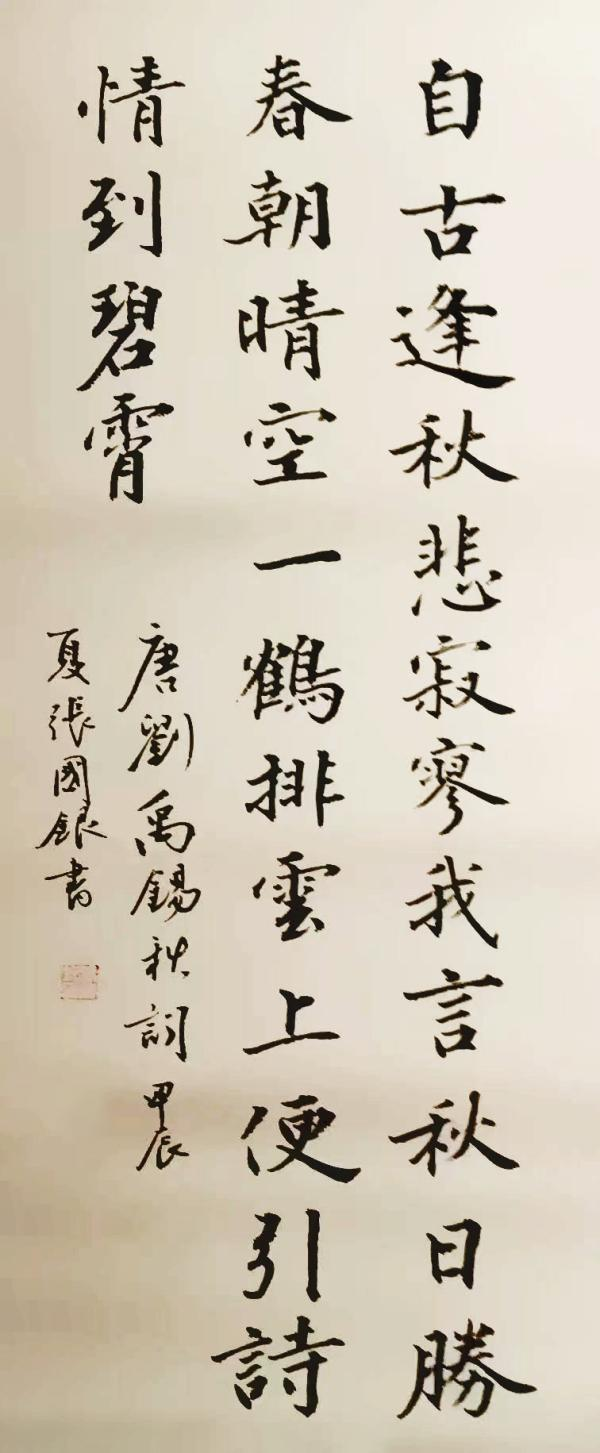 自古逢秋悲寂寥我言秋日勝
春朝晴空一鶴排雲上便引詩
情到碧霄
唐劉禹錫秋詞甲辰
夏張國銀書